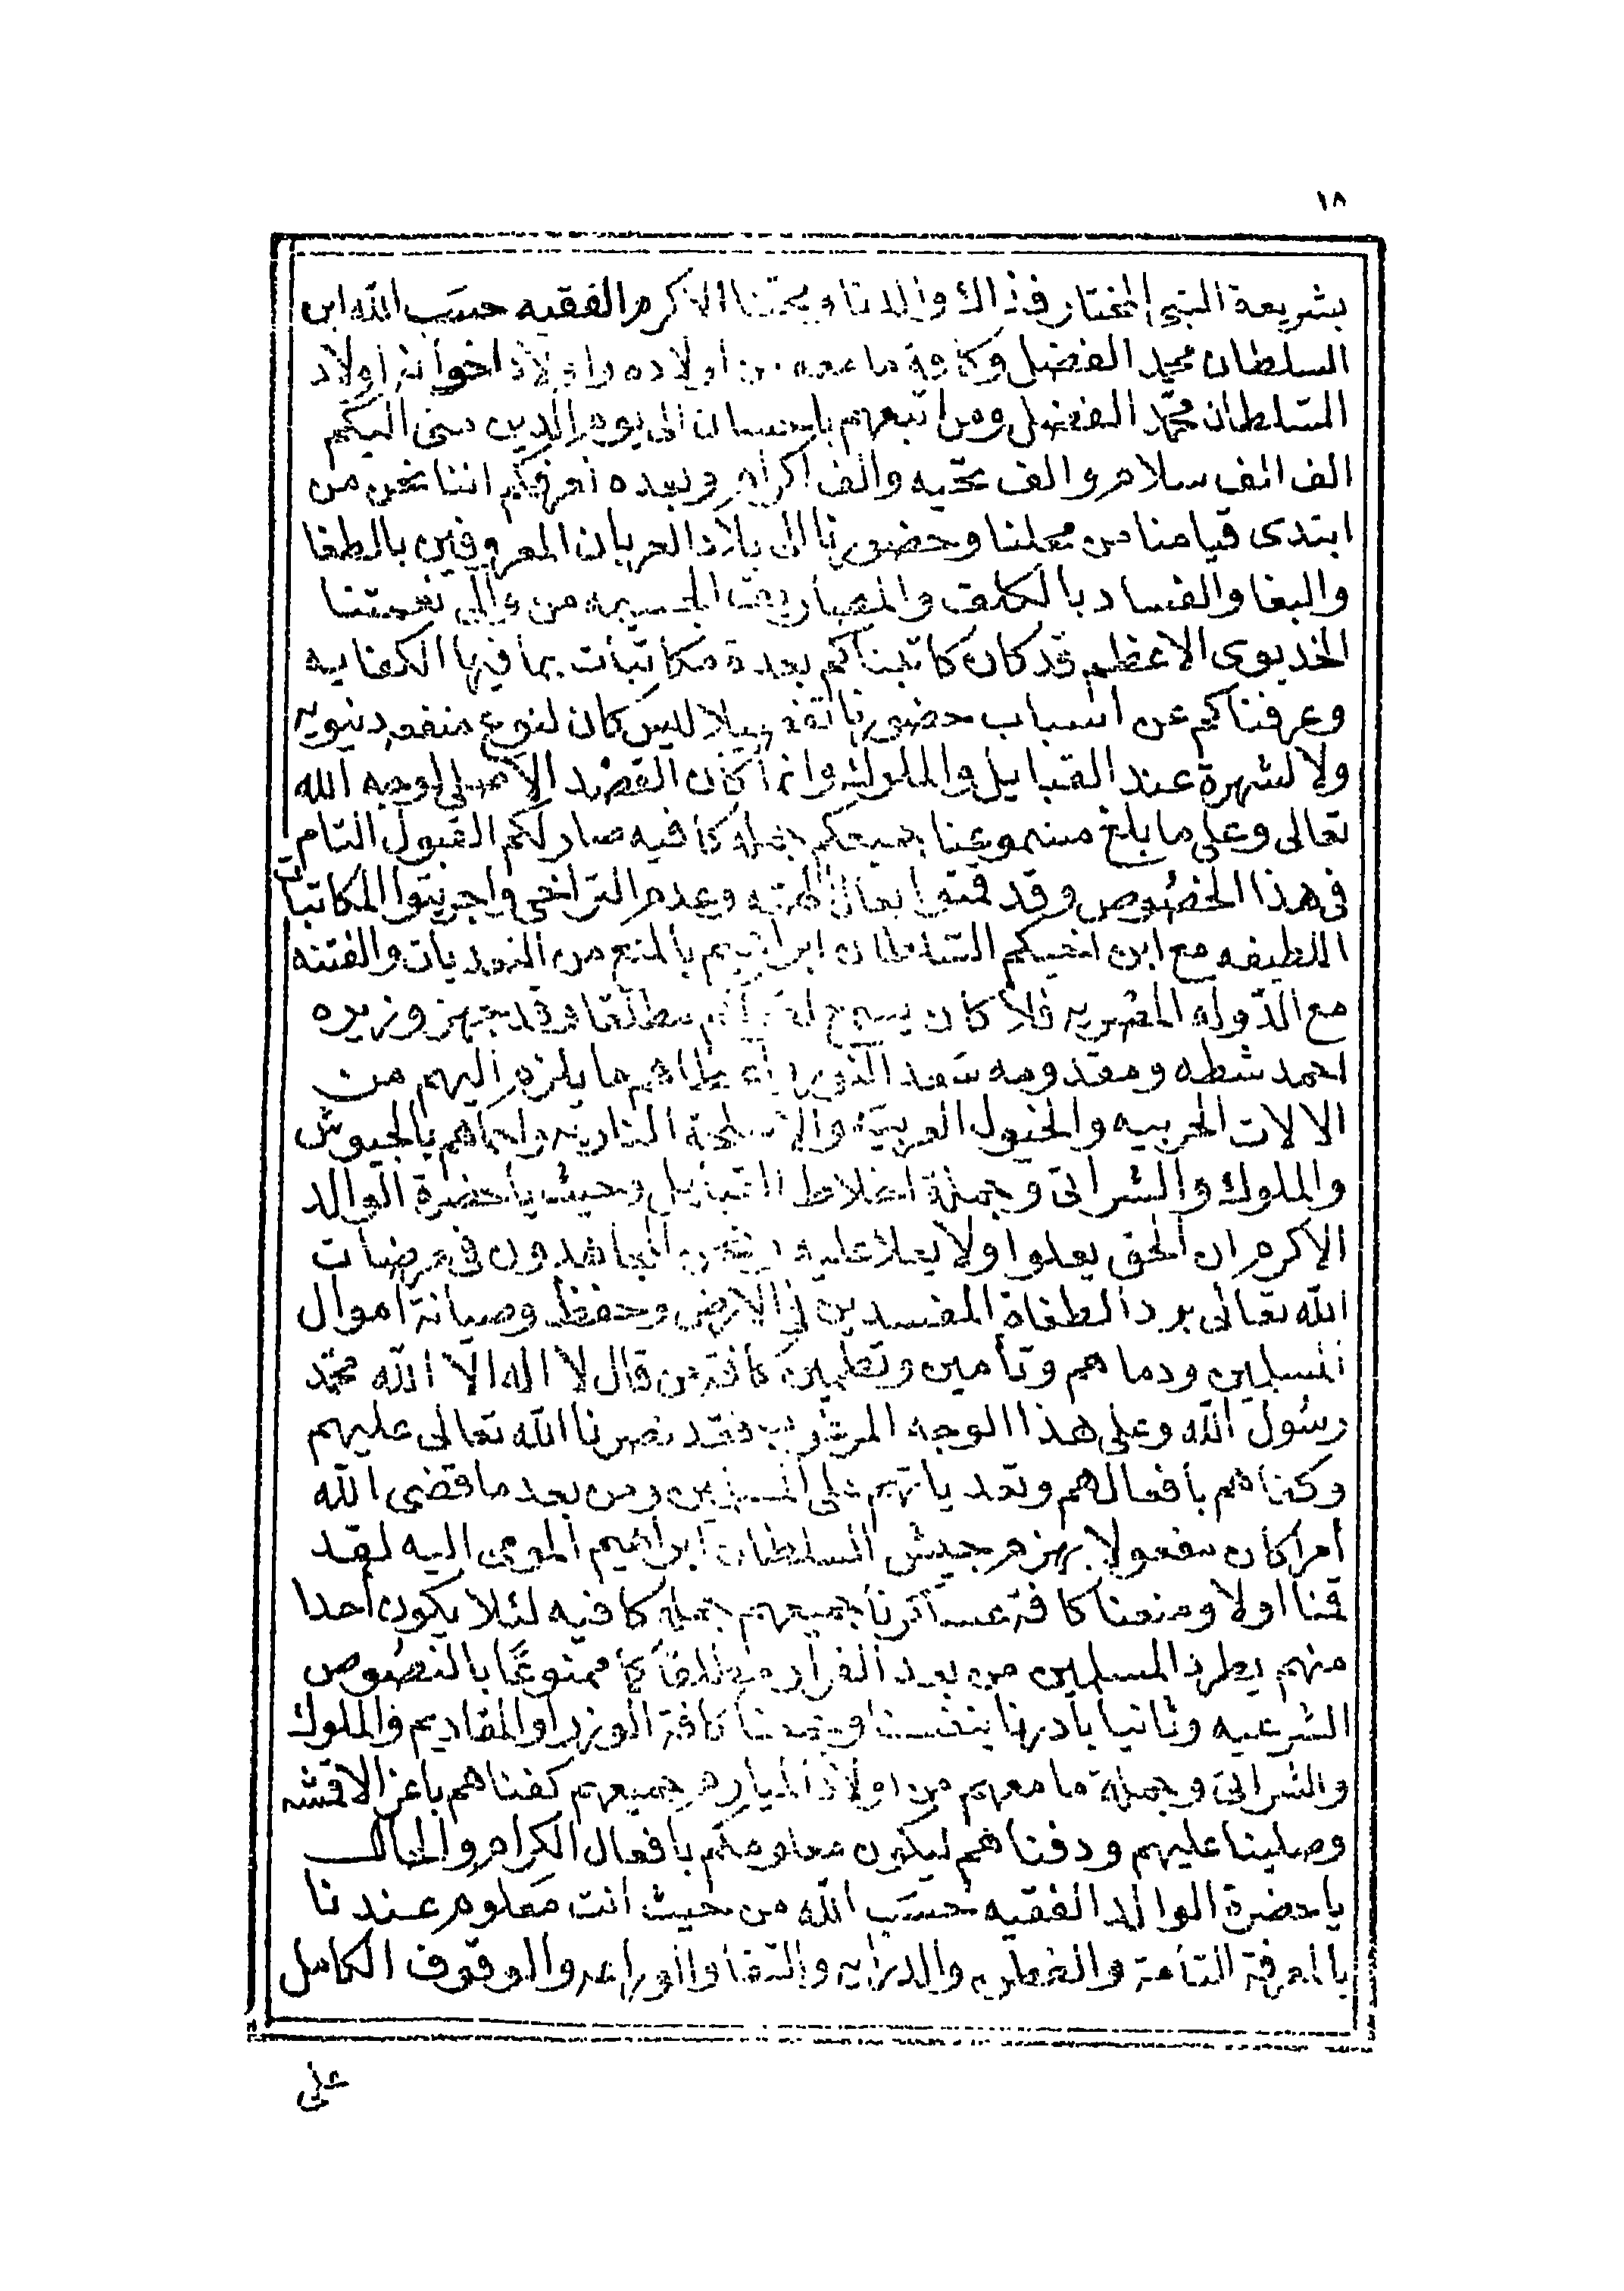 ١٨
بشريعة النبي المختار فذاك والدنا ومحبنا الاكرم الفقيه حسب الله ابن
السلطان محمد الفضل وكافة ما معه من أولاده واولاد اخوانه أولاد
السلطان محمد الفضل ومن اتبعهم باحسان الى يوم الدين منى اليكم
الف الف سلام والف تحيه والف اكرام وبعده نعرفكم اننا نحن من
ابتدى قيامنا من محلنا وحضورنا الى بلاد العربان المعروفين بالطغا
والبغا والفساد بالكلف والمصاريف الجسيمه من والى نعمتنا
الخديوى الاعظم قد كان كاتبناكم بعدة مكاتبات بما فيها الكفايه
وعرفناكم عن اسباب حضورنا تفصيلا ليس كان لنوع منفعه دنيويه
ولا لشهرة عند القبايل والملوك وانما كان القصد الاصلى لوجه الله
تعالى وعلى ما بلغ مسموعنا جميعكم بجملة كافيه صار لكم القبول التام
فى هذا الخصوص وقد قمتوا بعالى الهمه وعدم التراخى واجريتوا المكاتبات
اللطيفه مع ابن اخيكم السلطان ابراهيم بالمنع من التعديات والفتنه
مع الدوله المصريه فلا كان يسمح لقولكم مطلقا وقد جهز وزيره
احمد شطه ومقدومه سعد النور واعطاهم ما يلزم اليهم من
الالات الحربيه والخيول العربيه والاسلحة الناريه واتاهم بالجيوش
والملوك والشراتى وجملة اخلاط القبايل وحيث يا حضرة الوالد
الاكرم ان الحق يعلوا ولا يعلا عليه ونحن المجاهدون فى مرضات
الله تعالى برد الطغاة المفسدين فى الارض وحفظ وصيانة اموال
المسلمين ودماهم وتأمين وتطمين كافة من قال لا اله الا الله محمد
رسول الله وعلى هذا الوجه المرغوب فقد نصرنا الله تعالى عليهم
وكفناهم بأفعالهم وتعدياتهم على المسلمين ومن بعد ما قضى الله
أمرا كان مفعولا بهزم جيش السلطان ابراهيم المومى اليه لقد
قمنا اولا ومنعنا كافة عساكرنا جميعهم بجملة كافيه لئلا يكون أحدا
منهم يطرد المسلمين من بعد الفرار مطلقا كما ممنوعا بالنصوص
الشرعيه وثانيا بادرنا بنفسنا وجمعنا كافة الوزرا والمقاديم والملوك
والشراتى وجملة ما معهم من اولاد جميعهم كفناهم باعز الاقمشه
وصلينا عليهم ودفناهم ليكون معلومكم بافعال الكرام والحال
يا حضرة الوالد الفقيه حسب الله من حيث أنت معلوم عندنا
بالمعرفة التامة والدرايه والتقا والوقوف الكامل
على